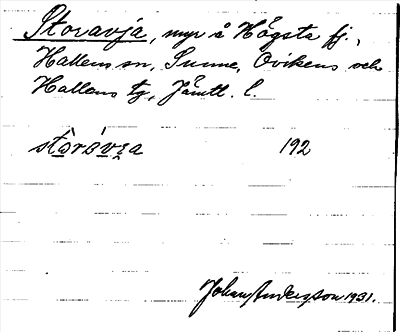 Storavjá, myr å Högsta fj.,
Hallens sn, Sunne, Ovikens och
Hallens tg, Jämtl. l.
stòrávꭋa 192
Johan Anderson 1931.